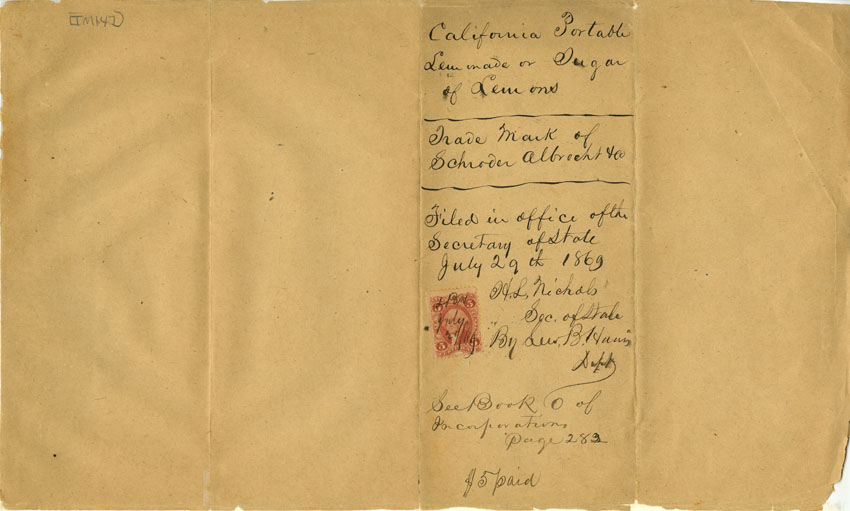 TM147
California Portable
Lemonade or Sugar
of Lemons
Trade Mark of
Schroder Albrecht & Co
Filed in office of the
Secretary of State
July 29th 1869
H.L. Nichols
Sec. of State
By Lew. B. Harris
Dept
5 5
July
29
See Book 6 of
Incorporations
Page 282
$5 paid